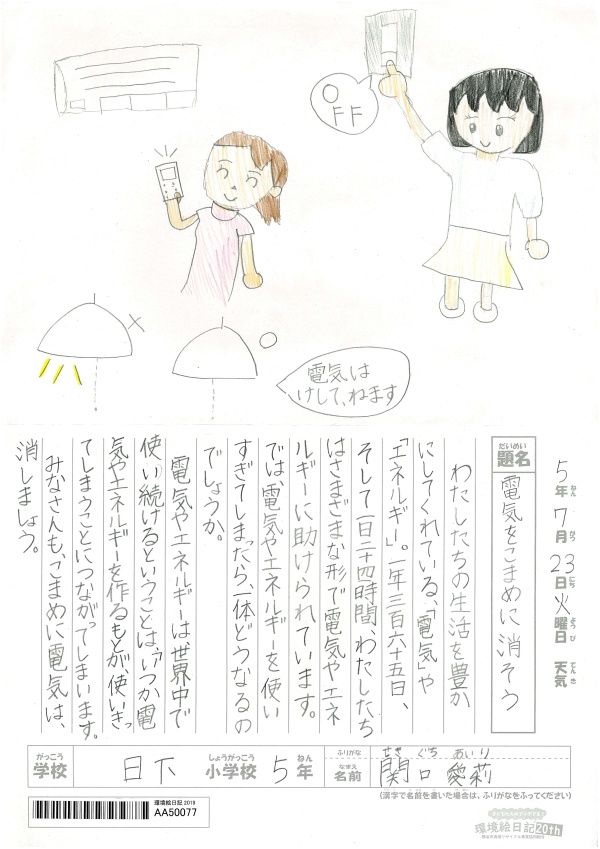 OFF
電気は
けして、ねます
5年7月23日火曜日 天気
ねん がつ にち ようび てんき
だいめい
題名
電気をこまめに消そう
わたしたちの生活を豊か
にしてくれている、「電気」や
「エネルギー」。一年三百六十五日、
そして一日二十四時間、わたしたち
はさまざまな形で電気やエネ
ルギーに助けられています。
では、電気やエネルギーを使い
すぎてしまったら、一体どうなるの
でしょうか。
電気やエネルギーは世界中で
使い続けるということは、いつか電
気やエネルギーを作るもとが使いきっ
てしまうことにつながってしまいます。
みなさんも、こまめに電気は、
消しましょう。
がっこう しょうがっこう ねん
学校 日下 小学校 5年
ふりがな せき ぐち あいり
なまえ
名前 関口 愛莉
(漢字で名前を書いた場合は、ふりがなをふってください)
環境絵日記 2019
AA50077
環境絵日記 20th